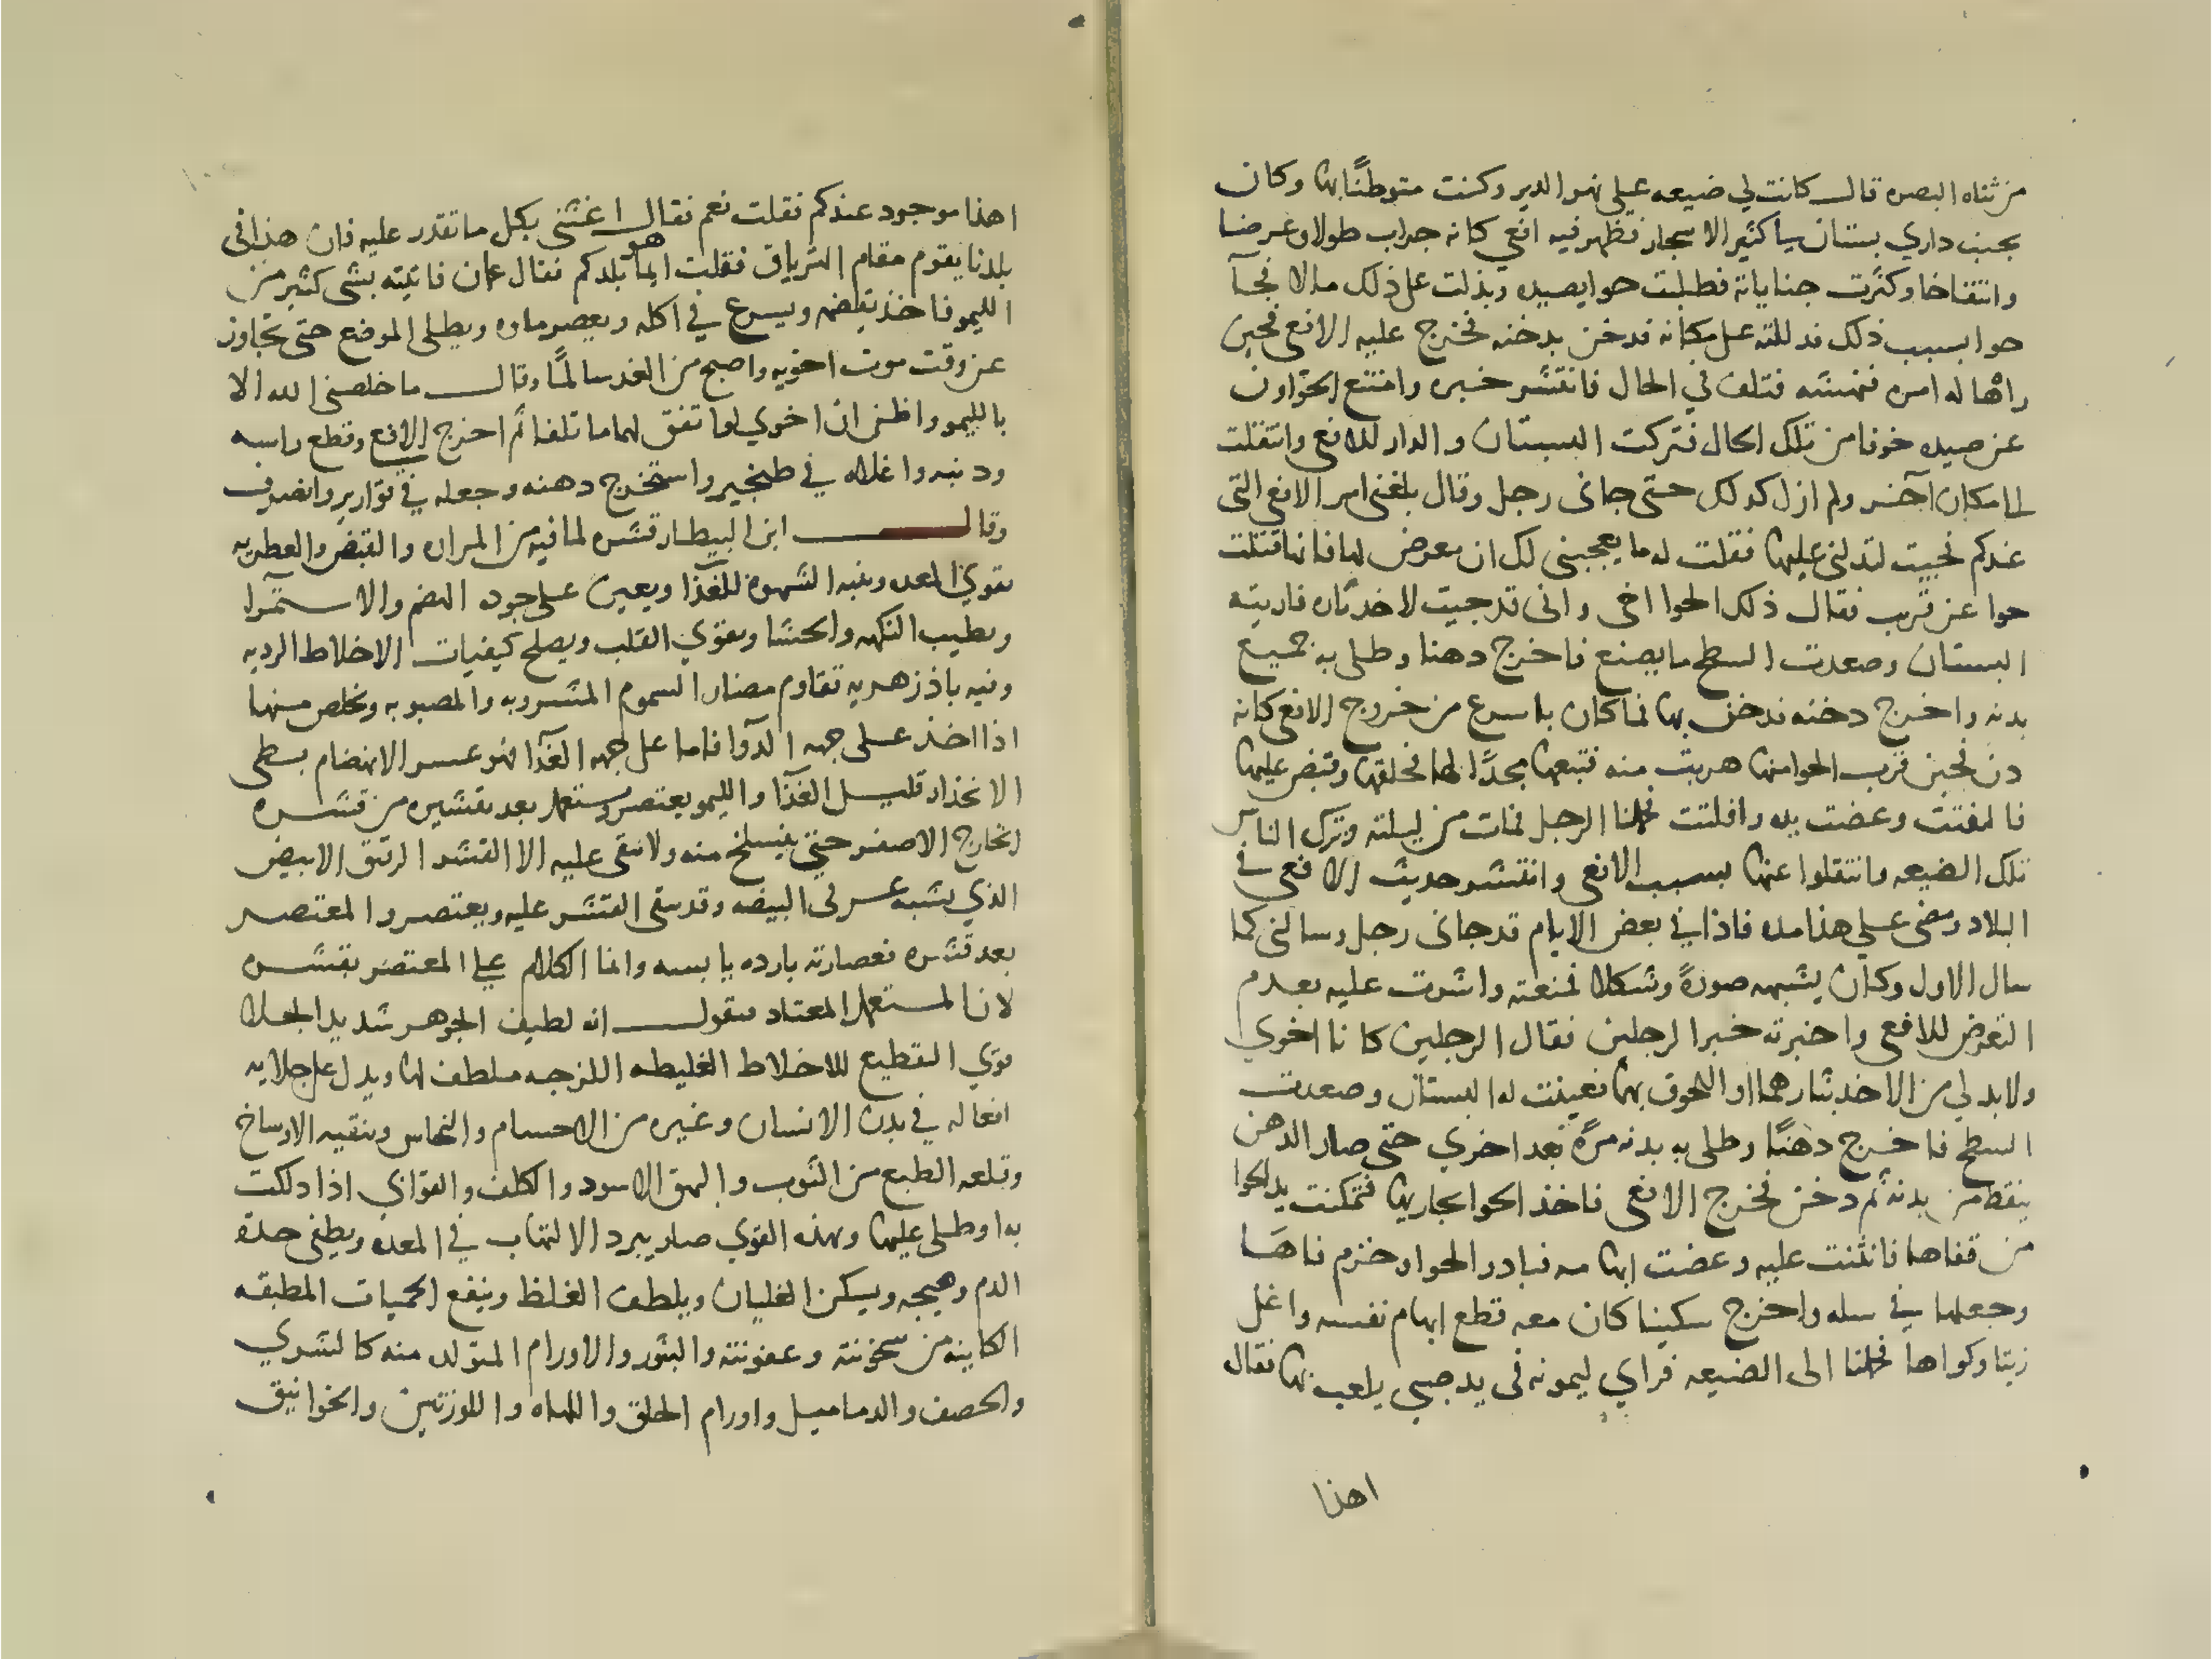 من ثناه البصره قال كانت لي ضيعه على نهر الدير وكنت متوطنًا بها وكان
بجنب داري بستان يا كثير الاشجار فظهر فيه افعي كانه جراب طولا وعرضا
وانتفاخا وكثرت جناياته فطلبت حوا يصيده وبذلت على ذلك مالا فجآ
حوا بسبب ذلك فدللته على مكانه فدخن بدخنه فخرج عليه الافعي فحين
راها له امره فنهشته فتلف في الحال فانتشر خبره وامتنع الحوّاون
عن صيده خوفا من تلك الحال فتركت البستان والدار للافعي وانتقلت
الى مكان آخر ولم ازل كذلك حتى جانى رجل وقال بلغنى امر الافعي التى
عندكم فجيت لتدلنى عليها فقلت له ما يعجبنى لك ان تعرض لها فانها قتلت
حوا عن قريب فقال ذلك الحوا اخى وانى قد جيت لاخد ثاره فاريته
البستان وصعدت السطح ما يصنع فاخرج دهنا وطلى به جميع
بدنه واخرج دخنه فدخن بها فما كان باسرع من خروج الافعي كانه
دن فحين قرب الحوا منها هربت منه فتبعها مجدًا لها فخلقها وقبض عليها
فالتفتت وعضت يده وافلتت فحملنا الرجل فمات من ليلته وترك الناس
تلك الضيعه وانتقلوا عنها بسبب الافعي وانتشر حديث الافعى في
البلاد ومضى على هذا مده فاذا في بعض الايام قد جانى رجل وسالنى كما
سال الاول وكان يشبهه صورةً وشكلا فمنعته واشرت عليه بعدم
التعرض للافعي واخبرته خبر الرجلين فقال الرجلين كانا اخوي
ولابد لي من الاخد بثارهما او اللحوق بهما فعينت له البستان وصعدت
السطح فاخرج دهنًا وطلى به بدنه مرةً بعد اخري حتى صار الدهن
ينقط من بدنه ثم دخن فخرج الافعى فاخذ الحوا يحاربها فتمكنت يد الحوا
من قفاها فانثنت عليه وعضت ابهامه فبادر الحوا وخزم فاها
وجعلها في سله واخرج سكينا كان معه قطع ابهام نفسه واغلى
زيتا وكواها فحملنا الى الضيعه فراي ليمونه فى يد صبي يلعب بها فقال
اهذا
اهذا موجود عندكم فقلت نعم فقال اغثنى بكل ما تقدر عليه فان هذا فى
بلدنا يقوم مقام الترياق فقلت ايما هو بلدكم فقال عمان فاتيته بشى كثير من
الليمو فاخذ يقضمه ويسرع في اكله ويعصر ماه ويطلى الموضع حتى تجاوز
عن وقت موت اخويه واصبح من الغد سالمًا وقال ما خلصنى الله الا
بالليمو واظن ان اخوي لو اتفق لهما ما تلفا ثم اخرج الافعي وقطع راسه
وذنبه واغلاه في طنجير واستخرج دهنه وجعله في قوارير وانصرف
وقال ابن البيطار قشره لما فيه من المراره والقبض والعطريه
يقوي المعده وينبه الشهوه للغذا ويعين على جوده الهضم والاستمرا
ويطيب النكهه والحشا ويقوي القلب ويصلح كيفيات الاخلاط الرديه
وفيه باذزهريه تقاوم مضار السموم المشروبه والمصبوبه وتخلص منها
اذا اخذ على جهه الدوآ فاما على جهه الغذآ فهو عسر الانهضام بطى
الانحذار قليل الغذآ والليمو يعتصر ويستعمل بعد تقشيره من قشره
الخارج الاصفر حتى ينسلخ منه ولا يبقى عليه الا القشر الرقيق الابيض
الذي يشبه غرقى البيضه وقد يبقى القشر عليه ويعتصر والمعتصر
بعد قشره فعصارته بارده يابسه وانما الكلام على المعتصر بقشره
لانا المستعمل المعتاد فنقول انه لطيف الجوهر شديد الجلا
قوي التقطيع للاخلاط الغليظه اللزجه ملطف لها ويدل على جلايه
افعاله في بدن الانسان وغيره من الاجسام والنحاس وتنقيه الاوساخ
وقلعه الطبع من الثوب والبهق الاسود والكلف والقوابي اذا دلكت
به او طلى عليها وبهذه القوي صار يبرد الالتهاب في المعده ويطفى حدة
الدم وهيجه ويسكن الغليان ويلطف الغلظ وينفع الحميات المطبقه
الكاينه من سخونته وعفونته والبثور والاورام المتولد منه كالشري
والحصف والدماميل واورام الحلق واللهاه واللوزتين والخوانيق